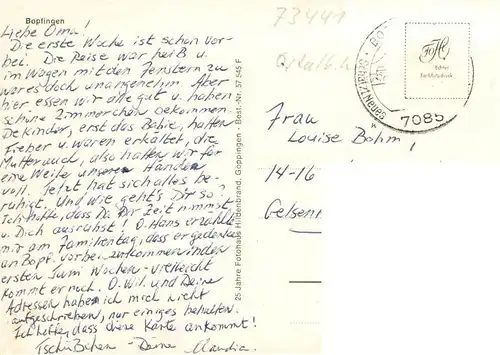 Bopfingen
Liebe Oma!
Die erste Woche ist schon vor-
bei. Die Reise war heiß u.
im Wagen mit den Fenstern zu
war es doch unangenehm. Aber
hier essen wir alle gut u. haben
schöne Zimmerchen bekommen.
De Kinder, erst das Babie, hatten
Fieber u. waren erkältet, die
Mutter auch, also hatten wir für
eine Weile unsere Handen
voll. Jetzt hat sich alles be-
ruhigt. Und wie geht's Dir so?
Ich hoffe, dass Du Dir Zeit nimmst
u. Dich ausruhst! O. Hans erzählte
mir am Familientag, dass er gedenke
an Bopf. vorbei zu kommen in den
ersten Juni Wochen - vielleicht
kommt er noch. O. Wil. und Deine
Adressen habe ich mich nicht
aufgeschrieben, nur einiges behalten.
Ich hoffe, dass diese Karte ankommt!
Tschüßchen - Deine Claudia.
25 Jahre Fotohaus Hildenbrand, Göppingen - Best.-Nr. 57 545 F
73441
Ostalb
7085
Echte
Farbfotodruck
Frau
Louise Böhm!
14-16
Gelsen